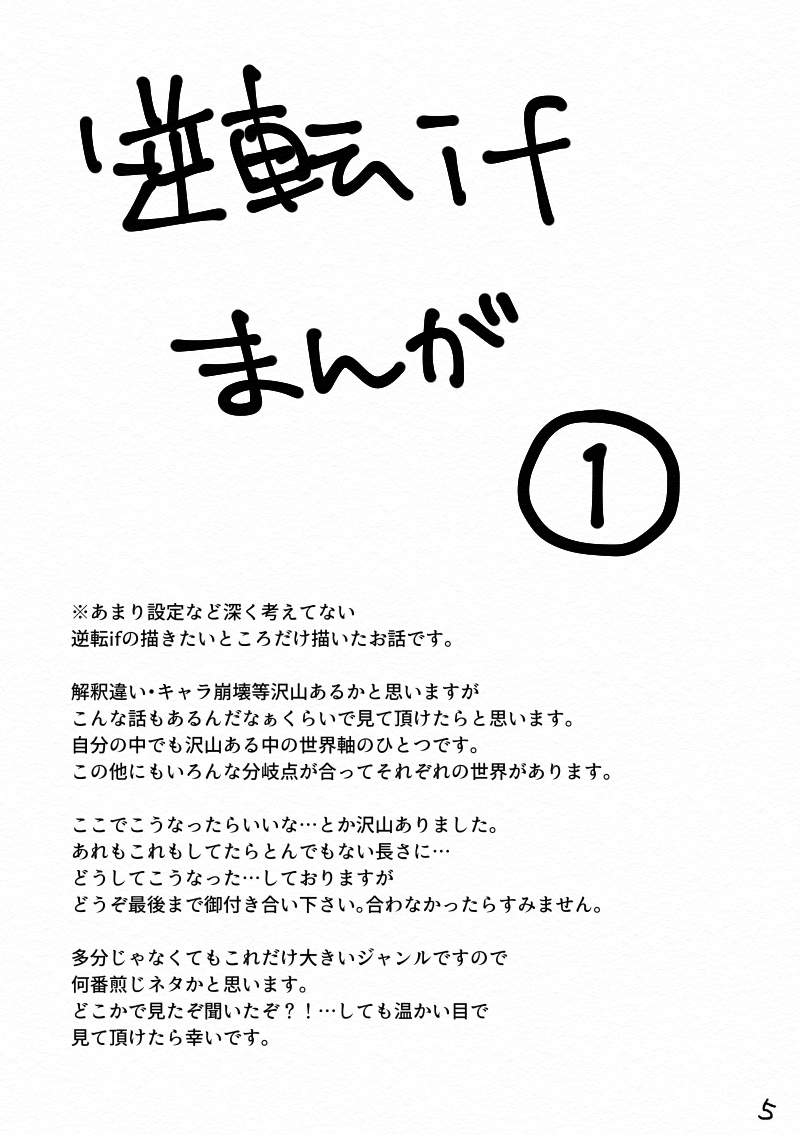 逆転if
まんが
①
※あまり設定など深く考えてない
逆転ifの描きたいところだけ描いたお話です。
解釈違い・キャラ崩壊等沢山あるかと思いますが
こんな話もあるんだなぁくらいで見て頂けたらと思います。
自分の中でも沢山ある中の世界軸のひとつです。
この他にもいろんな分岐点が合ってそれぞれの世界があります。
ここでこうなったらいいな…とか沢山ありました。
あれもこれもしてたらとんでもない長さに…
どうしてこうなった…しておりますが
どうぞ最後まで御付き合い下さい。合わなかったらすみません。
多分じゃなくてもこれだけ大きいジャンルですので
何番煎じネタかと思います。
どこかで見たぞ聞いたぞ？！…しても温かい目で
見て頂けたら幸いです。
5